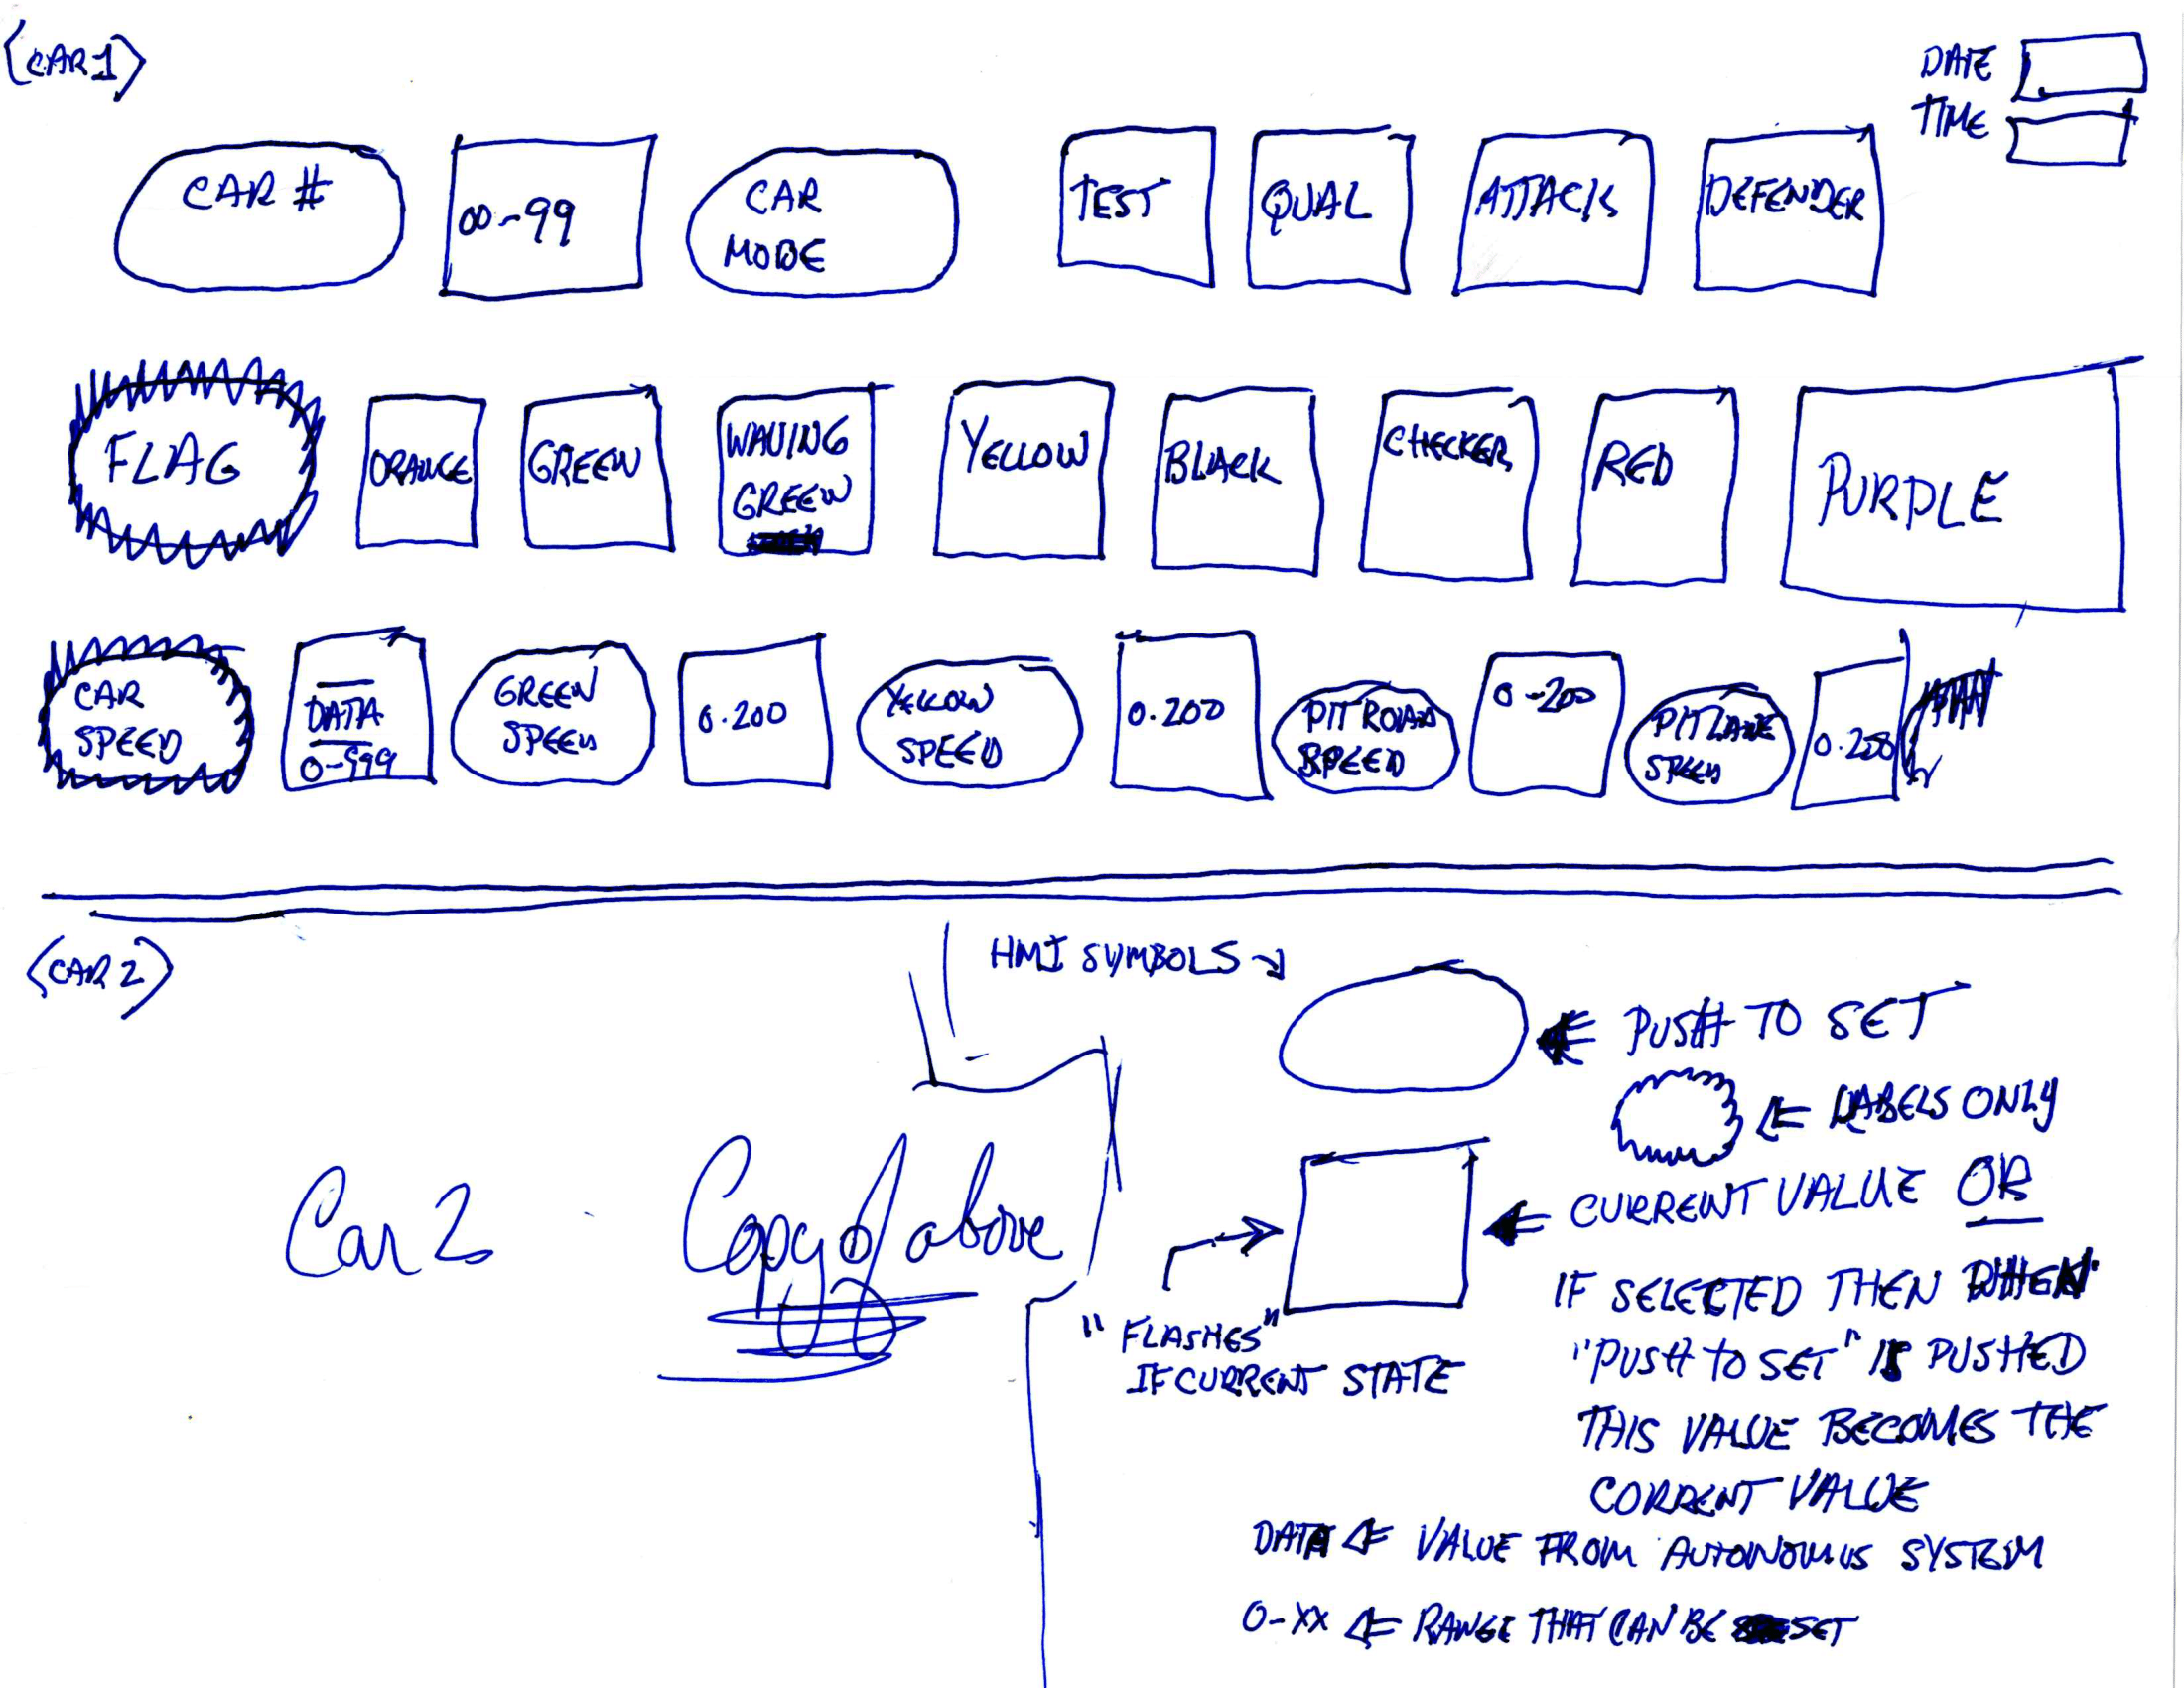 <CAR 1>
DATE
TIME
CAR #
00-99
CAR
MODE
TEST
QUAL
ATTACK
DEFENDER
FLAG
ORANGE
GREEN
WAVING
GREEN
YELLOW
BLACK
CHECKER
RED
PURPLE
CAR
SPEED
DATA
0-999
GREEN
SPEED
0.200
YELLOW
SPEED
0.200
PIT ROAD
SPEED
0-200
PIT LANE
SPEED
0.200
<CAR 2>
HMI SYMBOLS
PUSH TO SET
LABELS ONLY
Car 2 Copy of above
CURRENT VALUE OR
IF SELECTED THEN WHEN
"PUSH TO SET" IS PUSHED
THIS VALUE BECOMES THE
CURRENT VALUE
"FLASHES"
IF CURRENT STATE
DATA ⇐ VALUE FROM AUTONOMUS SYSTEM
0-XX ⇐ RANGE THAT CAN BE SET